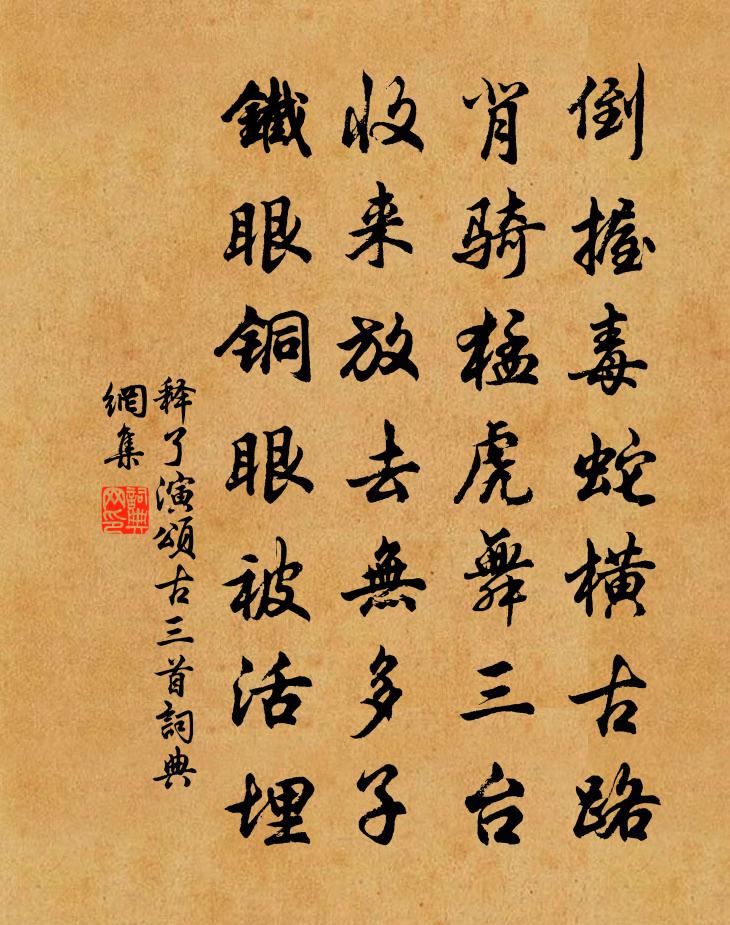 倒握毒蛇横古路
背骑猛虎舞三台
收来放去無多子
鐵眼铜眼被活埋
释了演頌古三首詞典
網集
詞典
网印